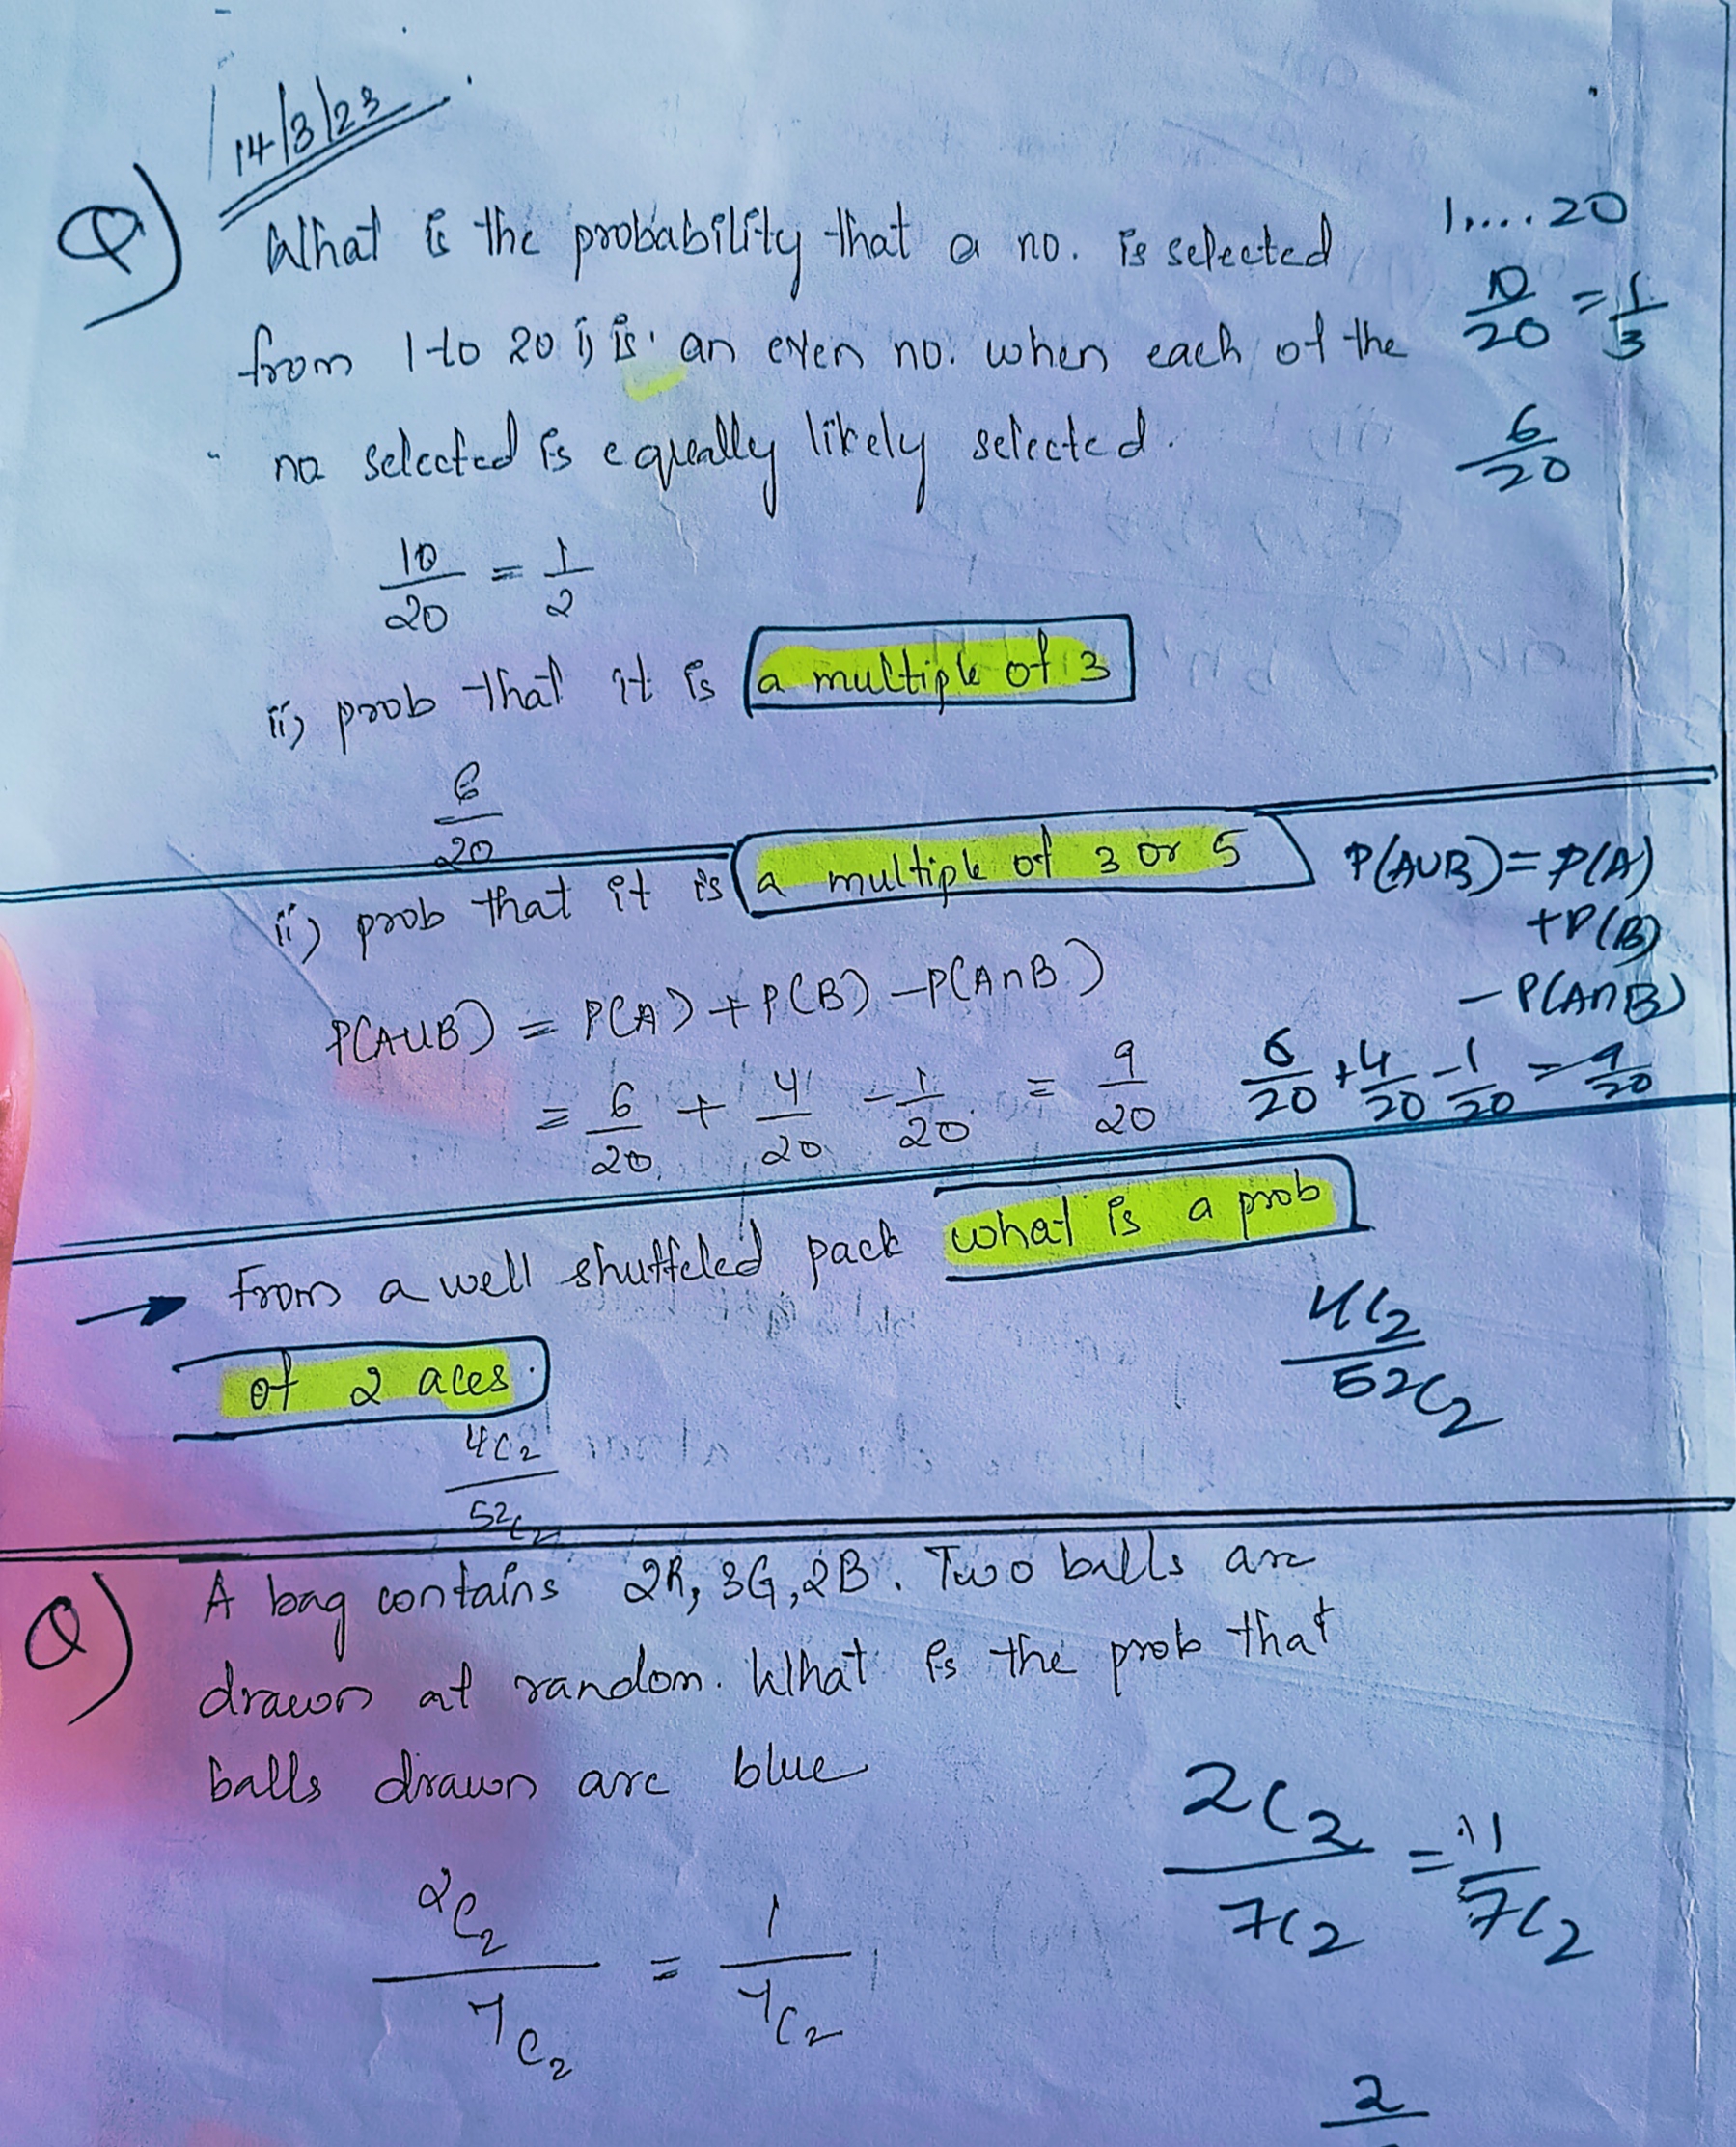 14/3/23
Q) What is the probability that a no. is selected
1,....20
from 1 to 20 i) is an even no. when each of the
10/20 = 1/3
no selected is equally likely selected.
6/20
10/20 = 1/2
ii) prob that it is a multiple of 3
6/20
ii) prob that it is a multiple of 3 or 5
P(A∪B) = P(A)
+P(B)
-P(A∩B)
P(A∪B) = P(A) + P(B) - P(A∩B)
= 6/20 + 4/20 - 1/20 = 9/20
6/20 + 4/20 - 1/20 = 9/20
→ From a well shuffeled pack what is a prob
of 2 aces.
4C2/52C2
4C2/52C2
Q) A bag contains 2R, 3G, 2B. Two balls are
drawn at random. What is the prob that
balls drawn are blue
2C2/7C2 = 1/7C2
2C2/7C2 = 11/7C2
2